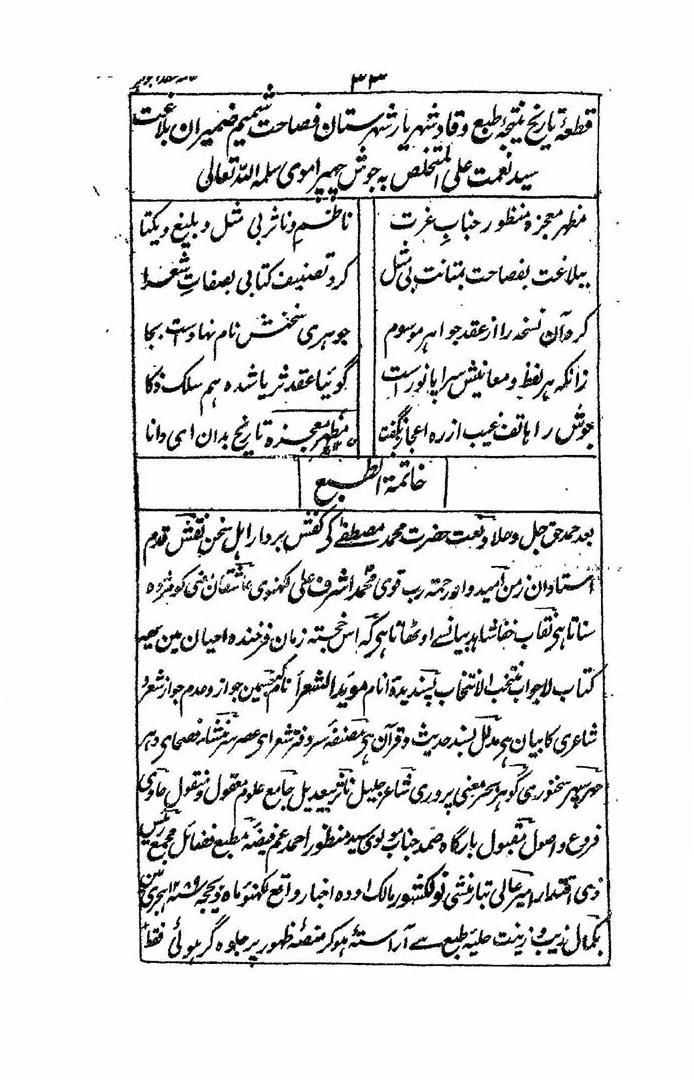 ۳۳
قطعۂ تاریخ نتیجۂ طبع وقاد شہریار شہرستان فصاحت شمیم ضمیران بلاغت
سید نعمت علی المتخلص بہ جوش چہپراموی سلمہ اللہ تعالی
مظہر معجزہ منظور جناب عزت
ناظم و ناثر بی مثل و بلیغ و یکتا
ببلاغت بفصاحت بمتانت بی مثل
کرد تصنیف کتابی بصفات شعرا
کرد آن نسخہ را از عقد جواہر موسوم
جوہری سخنش نام نہاد است بجا
زانکہ ہر لفظ و معانیش سراپا نور است
گوئیا عقد ثریا شدہ ہم سلک ذکا
جوش را ہاتف غیب از رہ اعجاز بگفتہ
مظہر معجزہ تاریخ بدان ای دانا
خاتمۃ الطبع
بعد حمد حق جل و علا و نعت حضرت محمد مصطفے کی کفش بردار اہل سخن نقش قدم
استادان زمن امیدوار رحمت رب قوی محمد اشرف علی لکہنوی عاشقان کو مژدہ
سناتا ہی نقاب خفا شاہد بیان سے اوٹہاتا ہی کہ اس خجستہ زمان فرخندہ احیان مین یہہ
کتاب لاجواب منتخب الانتخاب پسندیدۂ انام موید الشعرأ نام کہ جسمین جواز و عدم جواز شعر و
شاعری کا بیان ہی مدلل بسند حدیث و قرآن ہی مصنفہ سر دفتر شعرای عصر سر منشاء فصحای دہر
مہر سپہر سخنوری گوہر بحر معنی پروری شاعر جلیل ناثر بیعدیل جامع علوم معقول و منقول حاوی
فروع و اصول مقبول بارگاہ صمد جناب مولوی سید منظور احمد عم فیضہ مطبع فضائل مجمع رئیس
ذی اقتدار امیر عالی تبار منشی نولکشور مالک اودہ اخبار واقع لکہنؤ ماہ ذیحجہ ہجری مین
بکمال زیب و زینت حلیۂ طبع سے آراستہ ہوکر منصۂ ظہور پر جلوہ گر ہوئی فقط